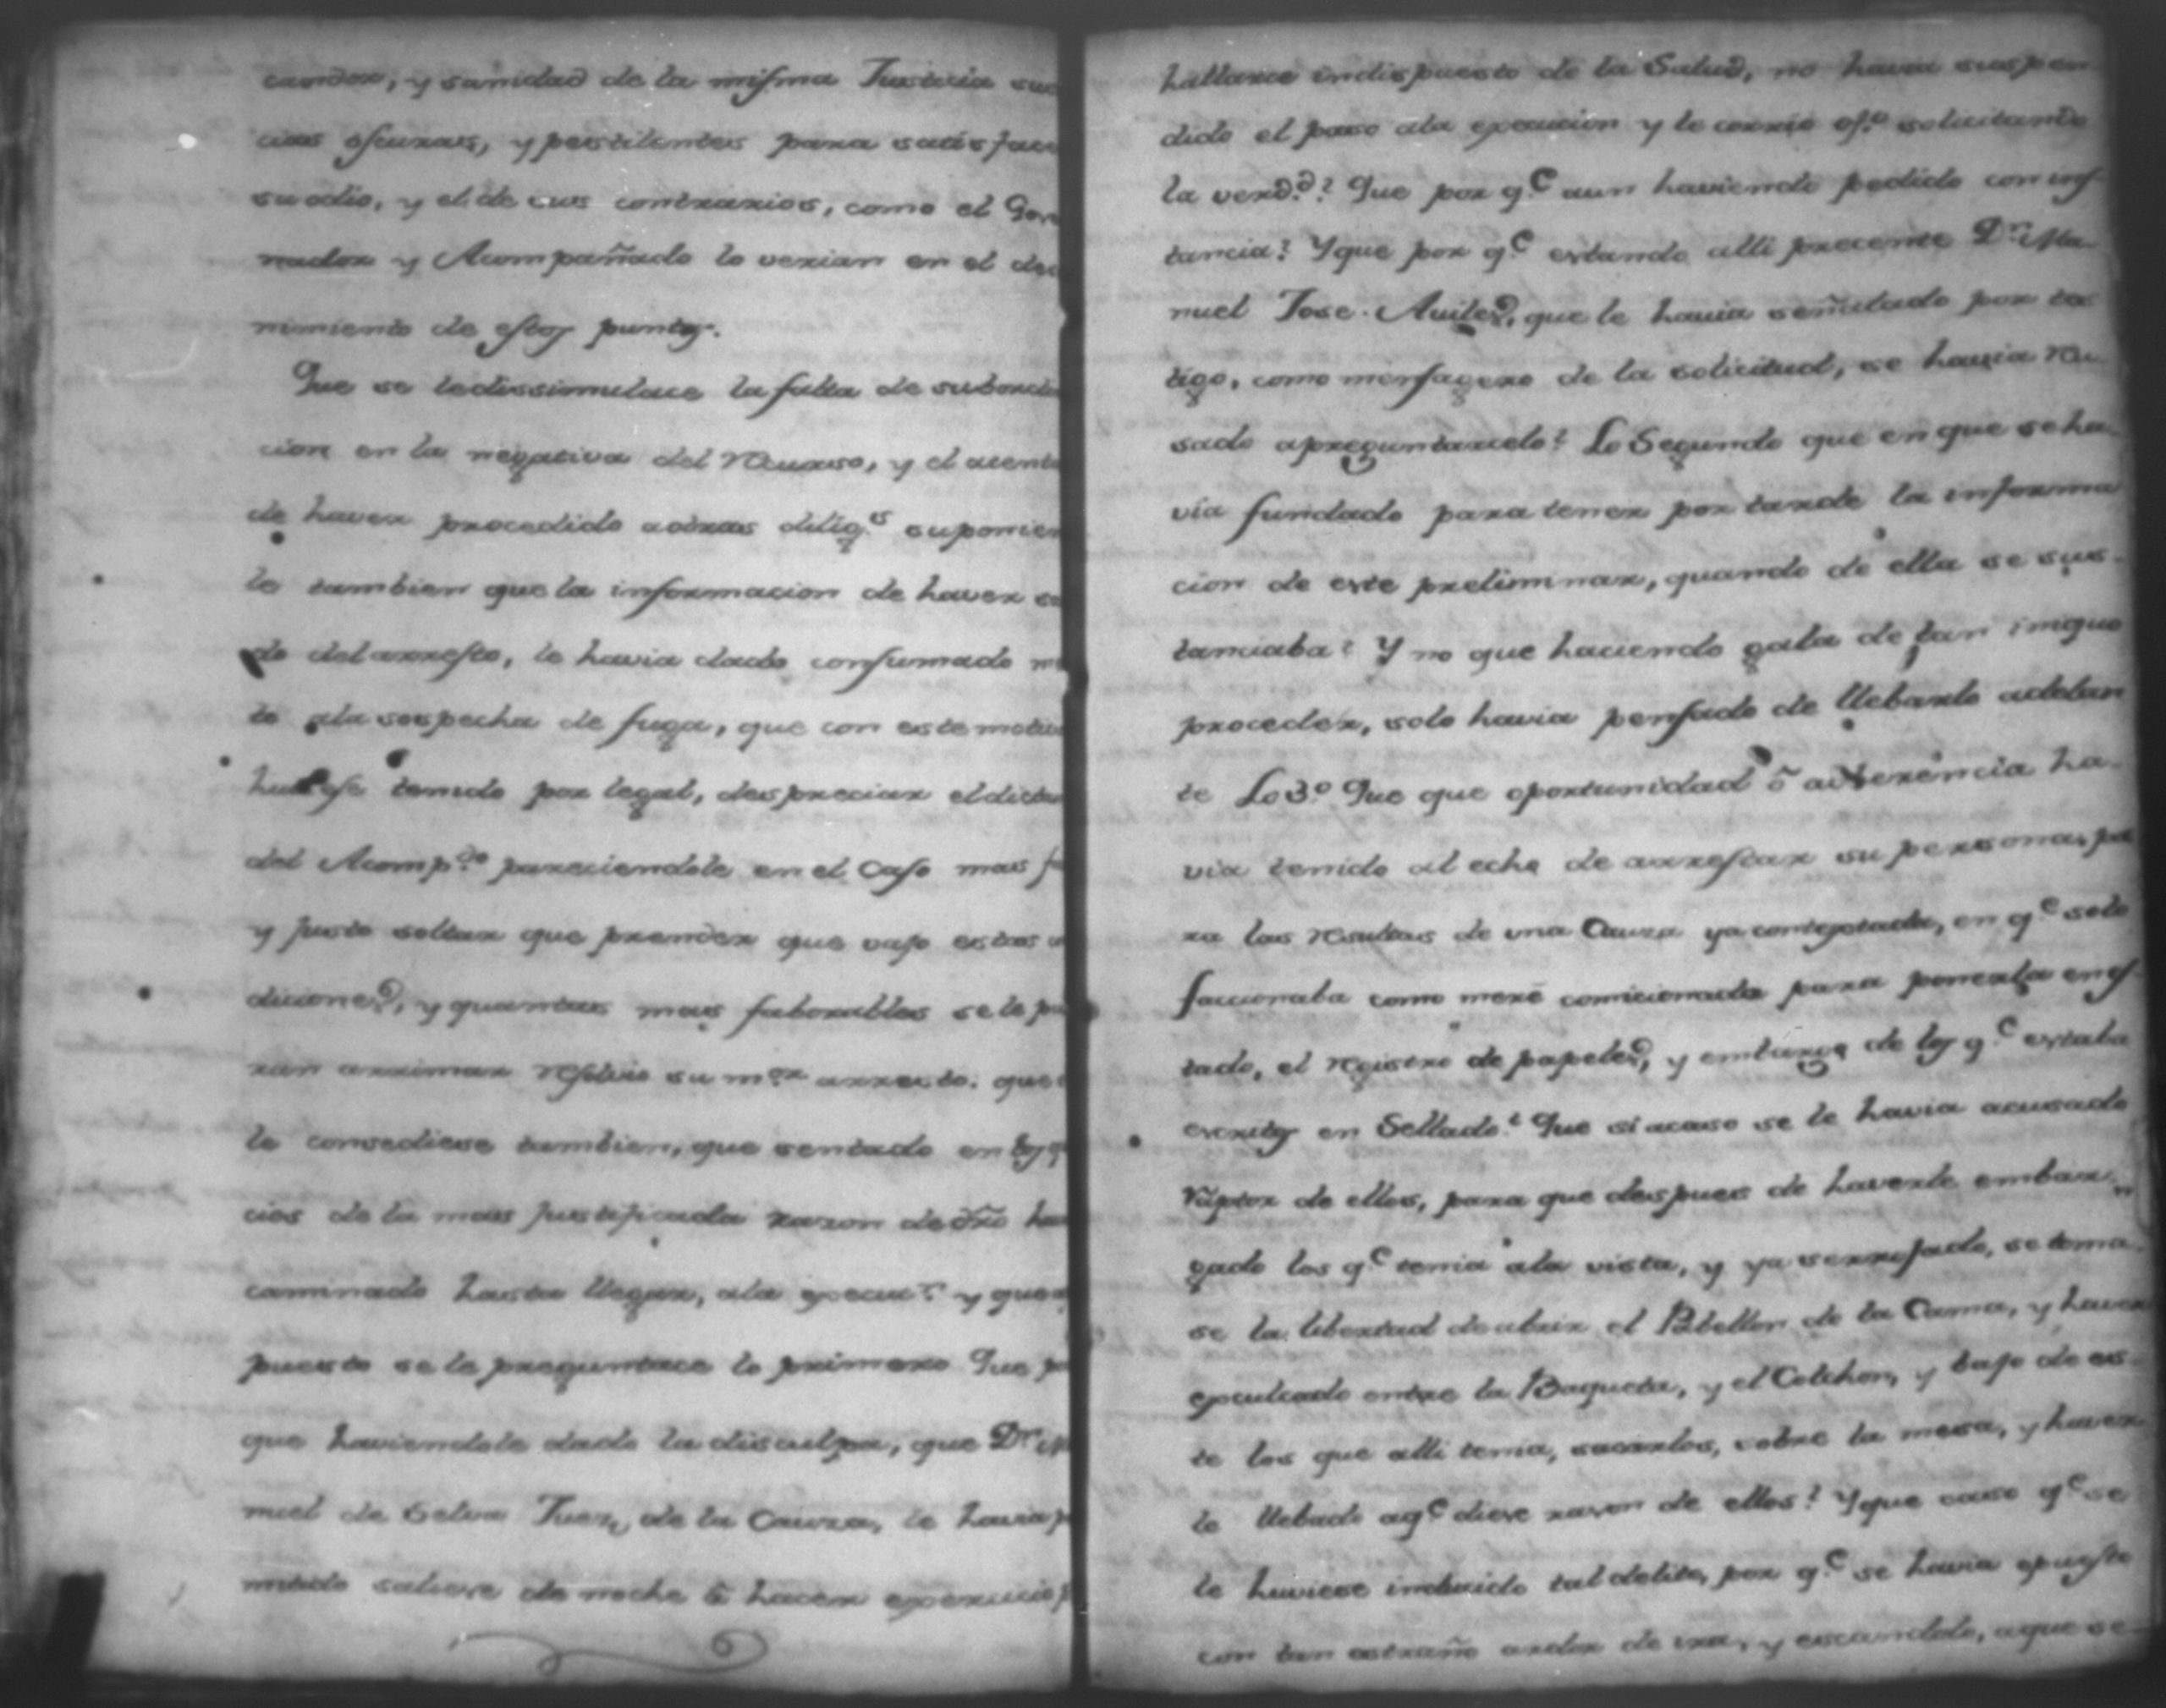 candor, y sanidad de la misma Justicia su
cias oscuras, y pestilentes para satisfacer
su odio, y el de sus contrarios, como el Gover
nador y Acompañado lo verian en el
nimiento de estos puntos.
Que se le dissimulace la falta de subordin
cion en la negativa del Recurso, y el atent
de haver procedido a otras dilig.s suponien
le tambien que la informacion de haver
do del arresto, le havia dado consumado m
to ala sospecha de fuga, que con este motiv
huviese tenido por legal, despreciar el dicta
del Acomp.do pareciendole en el Caso mas
y justo soltar que prender que vajo estas
diciones, y quantas mas faborables se le pu
ran arrimar su m.or arresto. que
le consediese tambien, que sentado en los
cios de la mas justificada razon de dro ha
caminado hasta llegar, ala execu.n y que
puesto se le preguntace lo primero Que p
que haviendole dado la disculpa, que Dn M
nuel de Selva Juez, de la Causa, le havia p
mitido saliese de noche â hacer exercicio p
hallarce indispuesto de la Salud, no havia suspen
dido el paso ala execucion y le corrió of.o solicitando
la verd.d? Que por q.e aun haviendo pedido con ins
tancia? Y que por q.e estando alli precente Dn Ma
nuel Jose Aviles, que le havia señalado por tes
tigo, como mensagero de la solicitud, se havia reu
sado a preguntarcelo? Lo Segundo que en que se ha
via fundado para tener por tarde la informa
cion de este preliminar, quando de ella se sus
tanciaba? Y no que haciendo gala de tan iniquo
proceder, solo havia pensado de llebarlo adelan
te Lo 3.o Que que oportunidad ô adherencia ha
via tenido al echo de arrestar su persona, pa
ra las resultas de una Causa ya contestada, en q.e solo
faccionaba como mere comicionado para ponerla en es
tado, el registro de papeles, y embargo de los q.e estaba
escritos en Sellado? Que si acaso se le havia acusado
Raptor de ellos, para que despues de haverle embar
gado los q.e tenia ala vista, y ya serrojado, se toma
se la libertad de abrir el Pabellon de la Cama, y haver
exculcado entre la Baqueta, y el Colchon, y bajo de es
te los que alli tenia, sacarlos, sobre la mesa, y haver
le llebado a q.e diese razon de ellos? Y que caso q.e se
le huviese induzido tal delito, por q.e se havia opuesto
con tan estraño ardor de ira, y escandalo, a que se